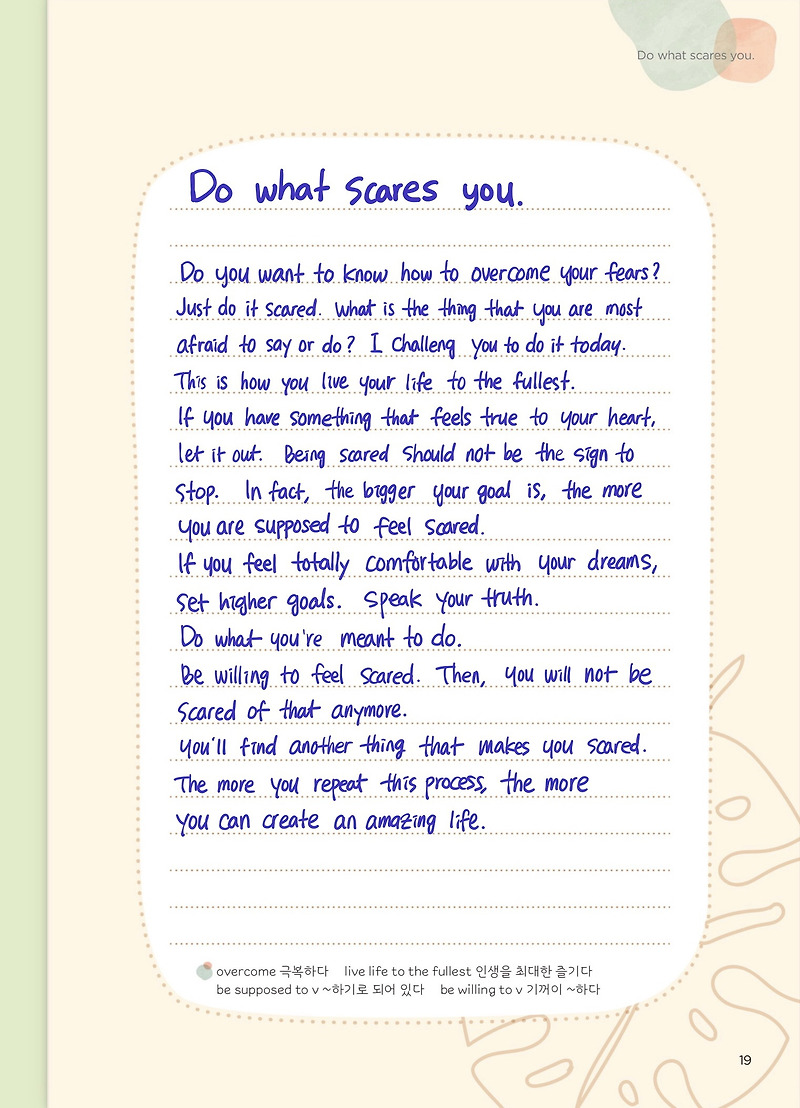 Do what scares you.
Do what scares you.
Do you want to know how to overcome your fears?
Just do it scared. What is the thing that you are most
afraid to say or do? I challeng you to do it today.
This is how you live your life to the fullest.
If you have something that feels true to your heart,
let it out. Being scared should not be the sign to
stop. In fact, the bigger your goal is, the more
you are supposed to feel scared.
If you feel totally comfortable with your dreams,
set higher goals. Speak your truth.
Do what you're meant to do.
Be willing to feel scared. Then, you will not be
scared of that anymore.
You'll find another thing that makes you scared.
The more you repeat this process, the more
you can create an amazing life.
overcome 극복하다 live life to the fullest 인생을 최대한 즐기다
be supposed to v ~하기로 되어 있다 be willing to v 기꺼이 ~하다
19